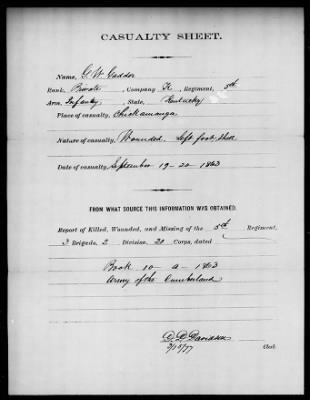 CASUALTY SHEET.
Name, G. W. Gaddor
Rank, Private, Company K, Regiment, 5th
Arm, Infantry, State, Kentucky
Place of casualty, Chickamauga
Nature of casualty, Wounded, Left foot, Shell
Date of casualty, September 19-20-1863
FROM WHAT SOURCE THIS INFORMATION WAS OBTAINED.
Report of Killed, Wounded, and Missing of the 5th Regiment,
3 Brigade, 2 Division, 20 Corps, dated
Book 10 - a - 1863
Army of the Cumberland
D. D. Davidson
Clerk.